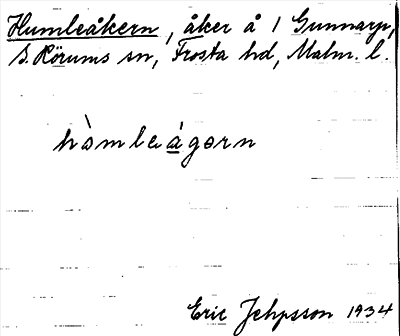 Humleåkern, åker å 1 Gunnarp,
S. Rörums sn, Frosta hd, Malm. l.
hòmleágərn
Eric Jehpsson 1934